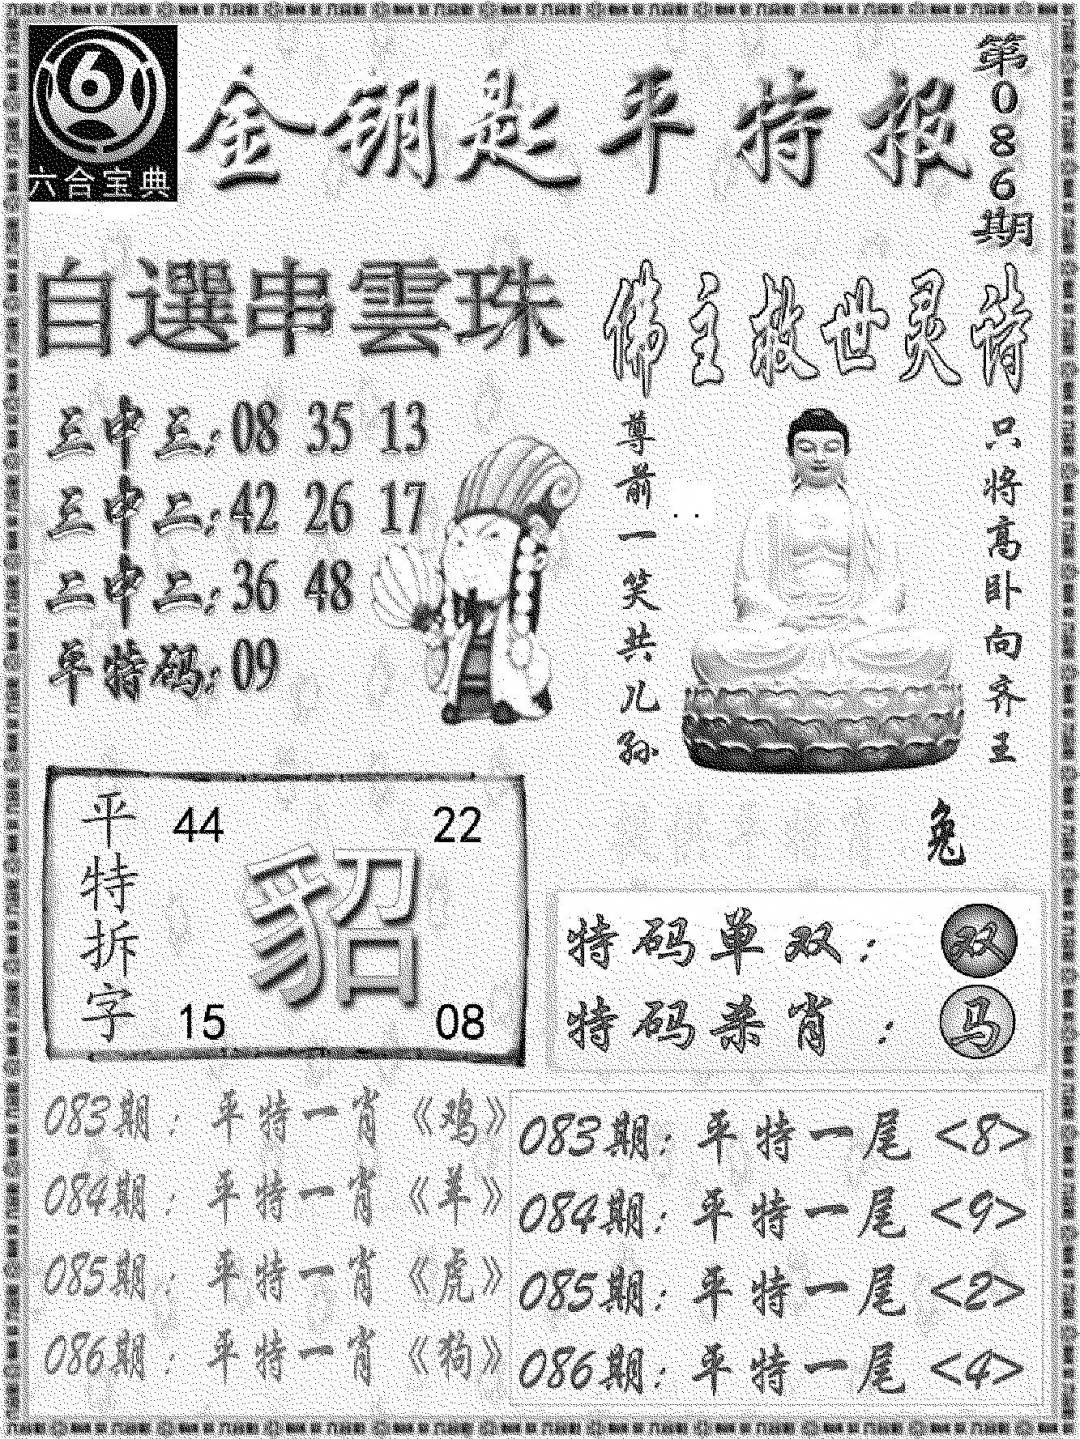 6
六合宝典
金钥匙平特报
第086期
自選串雲珠
三中三：08 35 13
三中二：42 26 17
二中二：36 48
平特码：09
佛主救世灵诗
只将高卧向齐王
尊前一笑共儿孙
兔
平特拆字
44 22
貂
15 08
特码单双：双
特码杀肖：马
083期：平特一肖《鸡》
084期：平特一肖《羊》
085期：平特一肖《虎》
086期：平特一肖《狗》
083期：平特一尾<8>
084期：平特一尾<9>
085期：平特一尾<2>
086期：平特一尾<4>